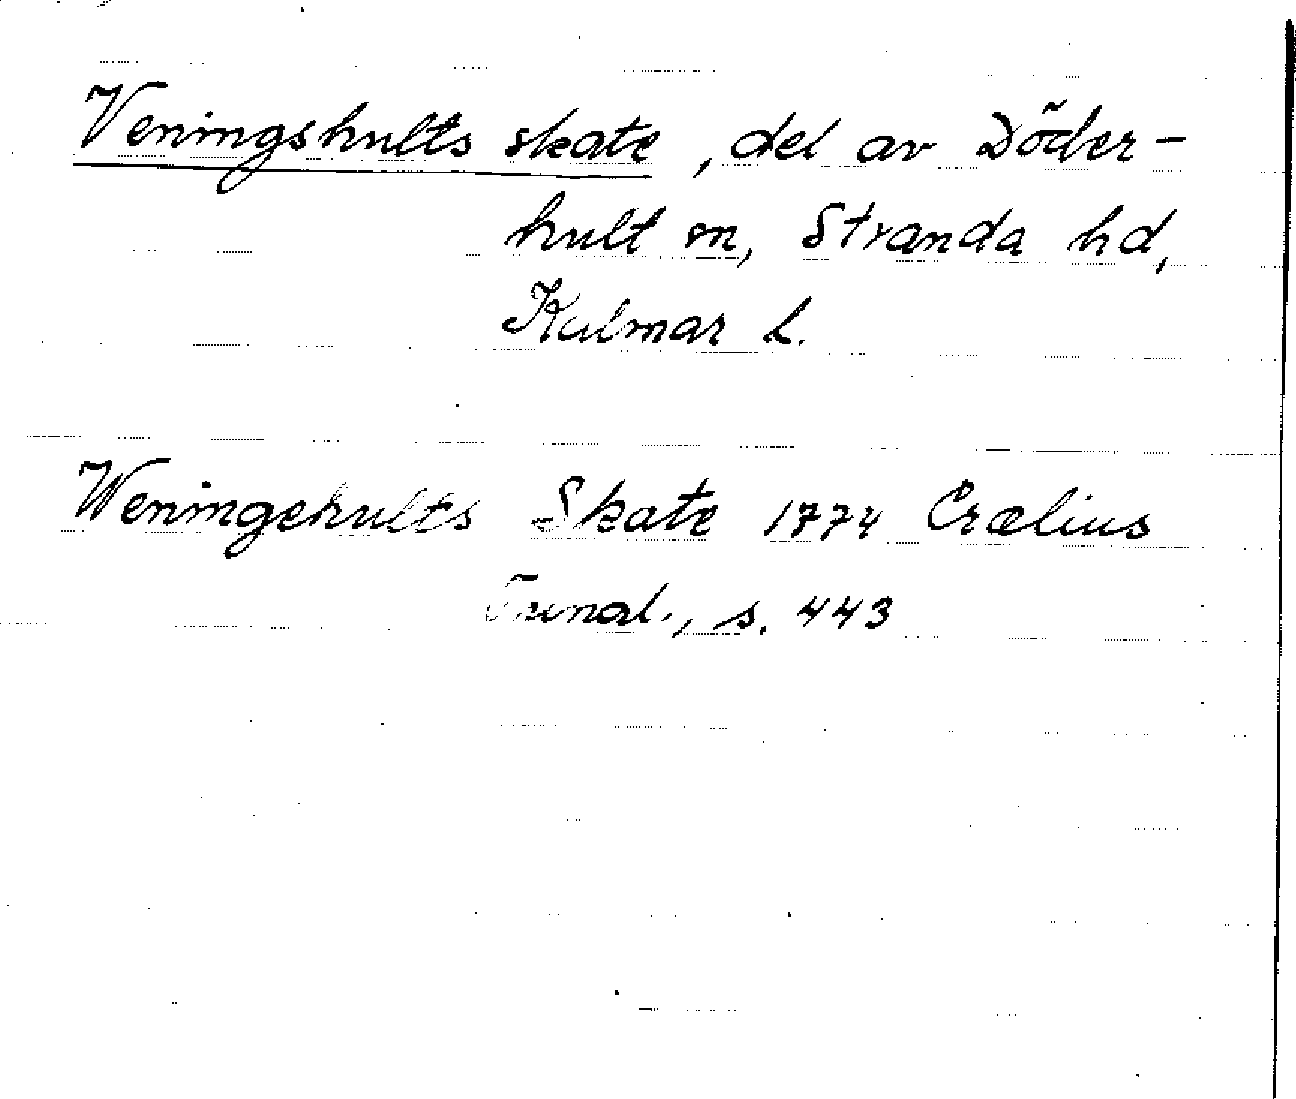 Veningshults skate, del av Döder-
hult sn, Stranda hd,
Kalmar l.
Weningehults Skate 1774 Crælius
Tunal., s. 443